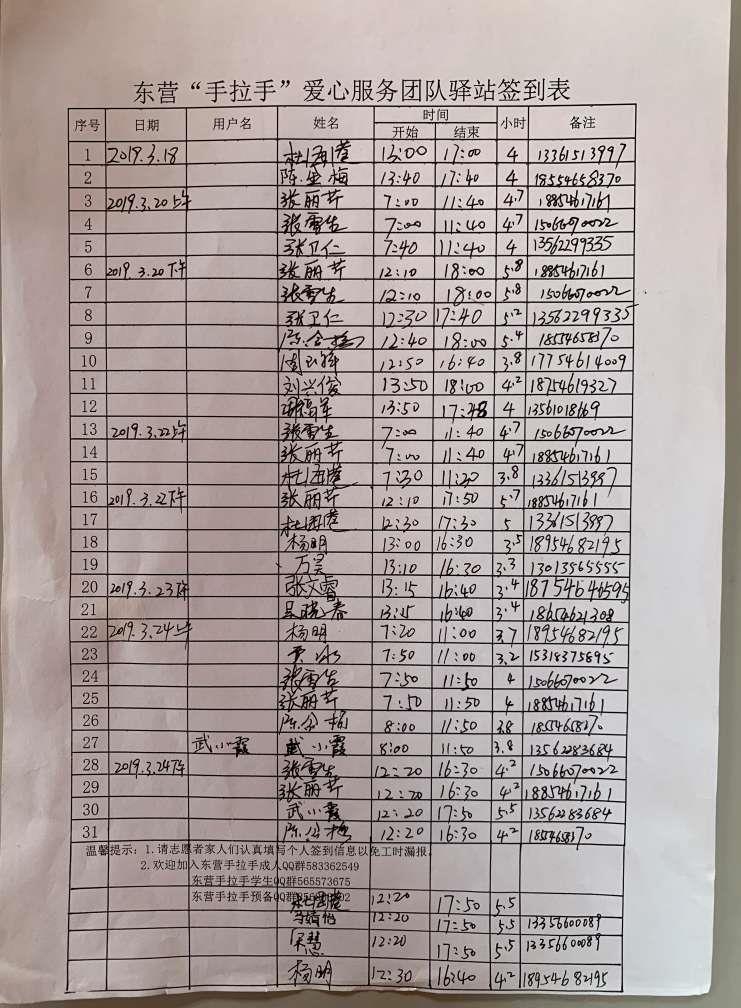 东营“手拉手”爱心服务团队驿站签到表
序号 日期 用户名 姓名 时间 小时 备注
开始 结束
1 2019.3.18 杜海港 13:00 17:00 4 13361513997
2 13:40 17:40 4 18554658370
3 2019.3.20上午 张丽芹 7:00 11:40 4.7 18854617161
4 张雪生 7:00 11:40 4.7 15066070022
5 张卫仁 7:40 11:40 4 13562299335
6 2019.3.20下午 张丽芹 12:10 18:00 5.8 18854617161
7 张雪生 12:10 18:00 5.8 15066070022
8 张卫仁 12:30 17:40 5.2 13562299335
9 12:40 18:00 5.4 18554658370
10 12:50 16:40 3.8 17754614009
11 刘兴俊 13:50 18:00 4.2 18754619327
12 13:50 17:48 4 13561018169
13 2019.3.22上午 张雪生 7:00 11:40 4.7 15066070022
14 张丽芹 7:00 11:40 4.7 18854617161
15 杜海港 7:30 11:20 3.8 13361513997
16 2019.3.22下午 张丽芹 12:10 17:50 5.7 18854617161
17 杜海港 12:30 17:30 5 13361513997
18 杨明 13:00 16:30 3.5 18954682195
19 万昊 13:10 16:30 3.3 13013565555
20 2019.3.23下午 张文睿 13:15 16:40 3.4 18754646595
21 吴晓春 13:15 16:40 3.4 18654621308
22 2019.3.24上午 杨明 7:20 11:00 3.7 18954682195
23 7:50 11:00 3.2 15318375895
24 张雪生 7:50 11:50 4 15066070022
25 张丽芹 7:50 11:50 4 18854617161
26 8:00 11:50 3.8 18554658370
27 武小霞 武小霞 8:00 11:50 3.8 13562283684
28 2019.3.24下午 张雪生 12:20 16:30 4.2 15066070022
29 张丽芹 12:20 16:30 4.2 18854617161
30 武小霞 12:20 17:50 5.5 13562283684
31 12:20 16:30 4.2 18554658370
温馨提示：1.请志愿者家人们认真填写个人签到信息以免工时漏报。
2.欢迎加入东营手拉手成人QQ群583362549
东营手拉手学生QQ群565573675
东营手拉手预备QQ群
杜海港 12:20 17:50 5.5
12:20 17:50 5.5 13356600089
12:20 17:50 5.5 13356600089
杨明 12:30 16:40 4.2 18954682195